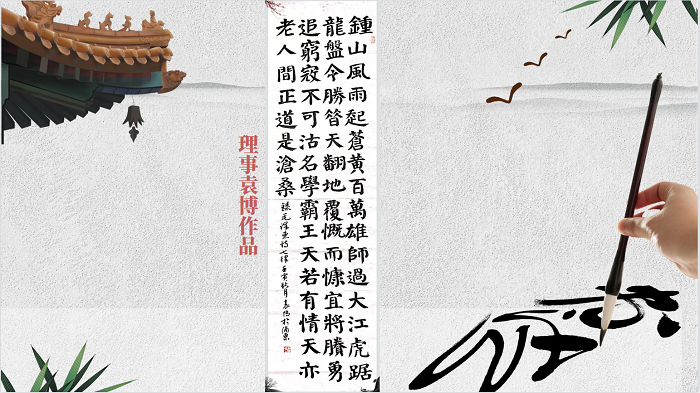 鍾山風雨起蒼黄百萬雄師過大江虎踞
龍盤今勝昔天翻地覆慨而慷宜將賸勇
追窮寇不可沽名學霸王天若有情天亦
老人間正道是滄桑
毛澤東詩七律壬寅秋月袁博於
理事袁博作品